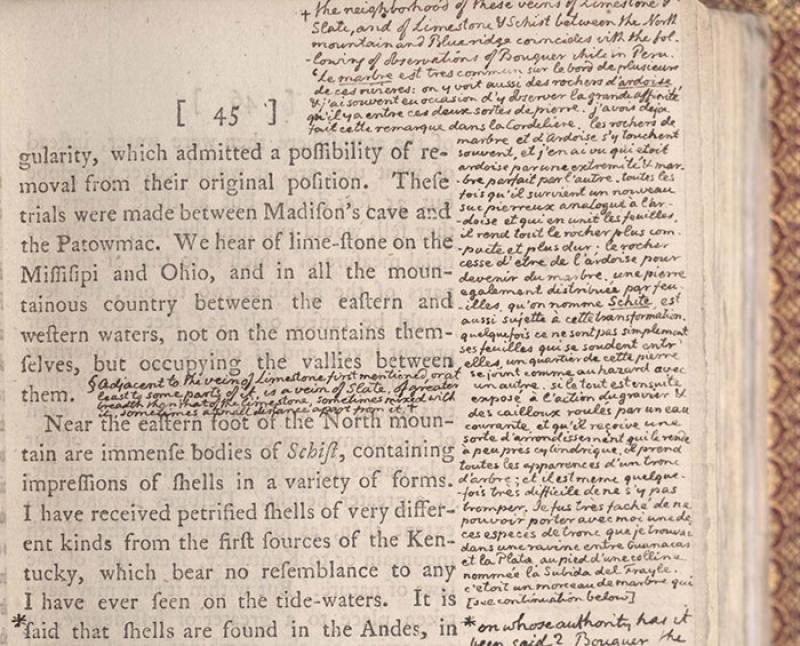 + the neighborhood of these veins of Limestone &
Slate, and of Limestone & Schist between the North
mountain and Blue ridge coincides with the fol-
-lowing observations of Bouguer while in Peru.
'Le marbre est tres commun sur le bord de plusieurs
de ces rivieres: on y voit aussi des rochers d'ardoise,
& j'ai souvent eu occasion d'y observer la grande affinité
qu'il y a entre ces deux sortes de pierre. j'avois deja
fait cette remarque dans la Cordeliere. les rochers de
marbre et d'Ardoise s'y touchent
souvent, et j'en ai vu qui etoit
ardoise par une extremité & mar-
-bre parfait par l'autre. toutes les
fois qu'il survient un nouveau
suc pierreux analogue à l'ar-
-doise et qui en unit les feuilles,
il rend tout le rocher plus com-
-pacte et plus dur: le rocher
cesse d'etre de l'ardoise pour
devenir du marbre. une pierre
egalement distribuée par feu-
-illes, qu'on nomme Schite, est
aussi sujette à cette transformation.
quelquefois ce ne sont pas simplement
ses feuilles qui se soudent entr'
elles, un quartier de cette pierre
se joint comme au hazard avec
un autre. si le tout est ensuite
exposé à l'action du gravier &
des cailloux roulés par un eau
courante, et qu'il reçoive une
sorte d'arrondissement qui le rende
à peu près cylindrique, il prend
toutes les apparences d'un tronc
d'arbre; et il est meme quelque-
-fois tres difficile de ne s'y pas
tromper. Je fus tres faché de ne
pouvoir porter avec moi une de
ces especes de tronc que je trouvai
dans une ravine entre Guanacas
et la Plata, au pied d'une colline
nommée la Subida del Frayle.
c'etoit un morceau de marbre qui
[see continuation below]
[ 45 ]
gularity, which admitted a poſſibility of re-
moval from their original poſition. Theſe
trials were made between Madiſon's cave and
the Patowmac. We hear of lime-ſtone on the
Miſſiſipi and Ohio, and in all the moun-
tainous country between the eaſtern and
weſtern waters, not on the mountains them-
ſelves, but occupying the vallies between
them. § Adjacent to the vein of Limestone first mentioned, or at
least to some parts of it, is a vein of Slate, of greater
breadth than that of the limestone, sometimes mixed with
it, sometimes a small distance apart from it. +
Near the eaſtern foot of the North moun-
tain are immenſe bodies of Schiſt, containing
impreſſions of ſhells in a variety of forms.
I have received petrified ſhells of very differ-
ent kinds from the firſt ſources of the Ken-
tucky, which bear no reſemblance to any
I have ever ſeen on the tide-waters. It is
*ſaid that ſhells are found in the Andes, in
* on whose authority has it
been said? Bouguer the